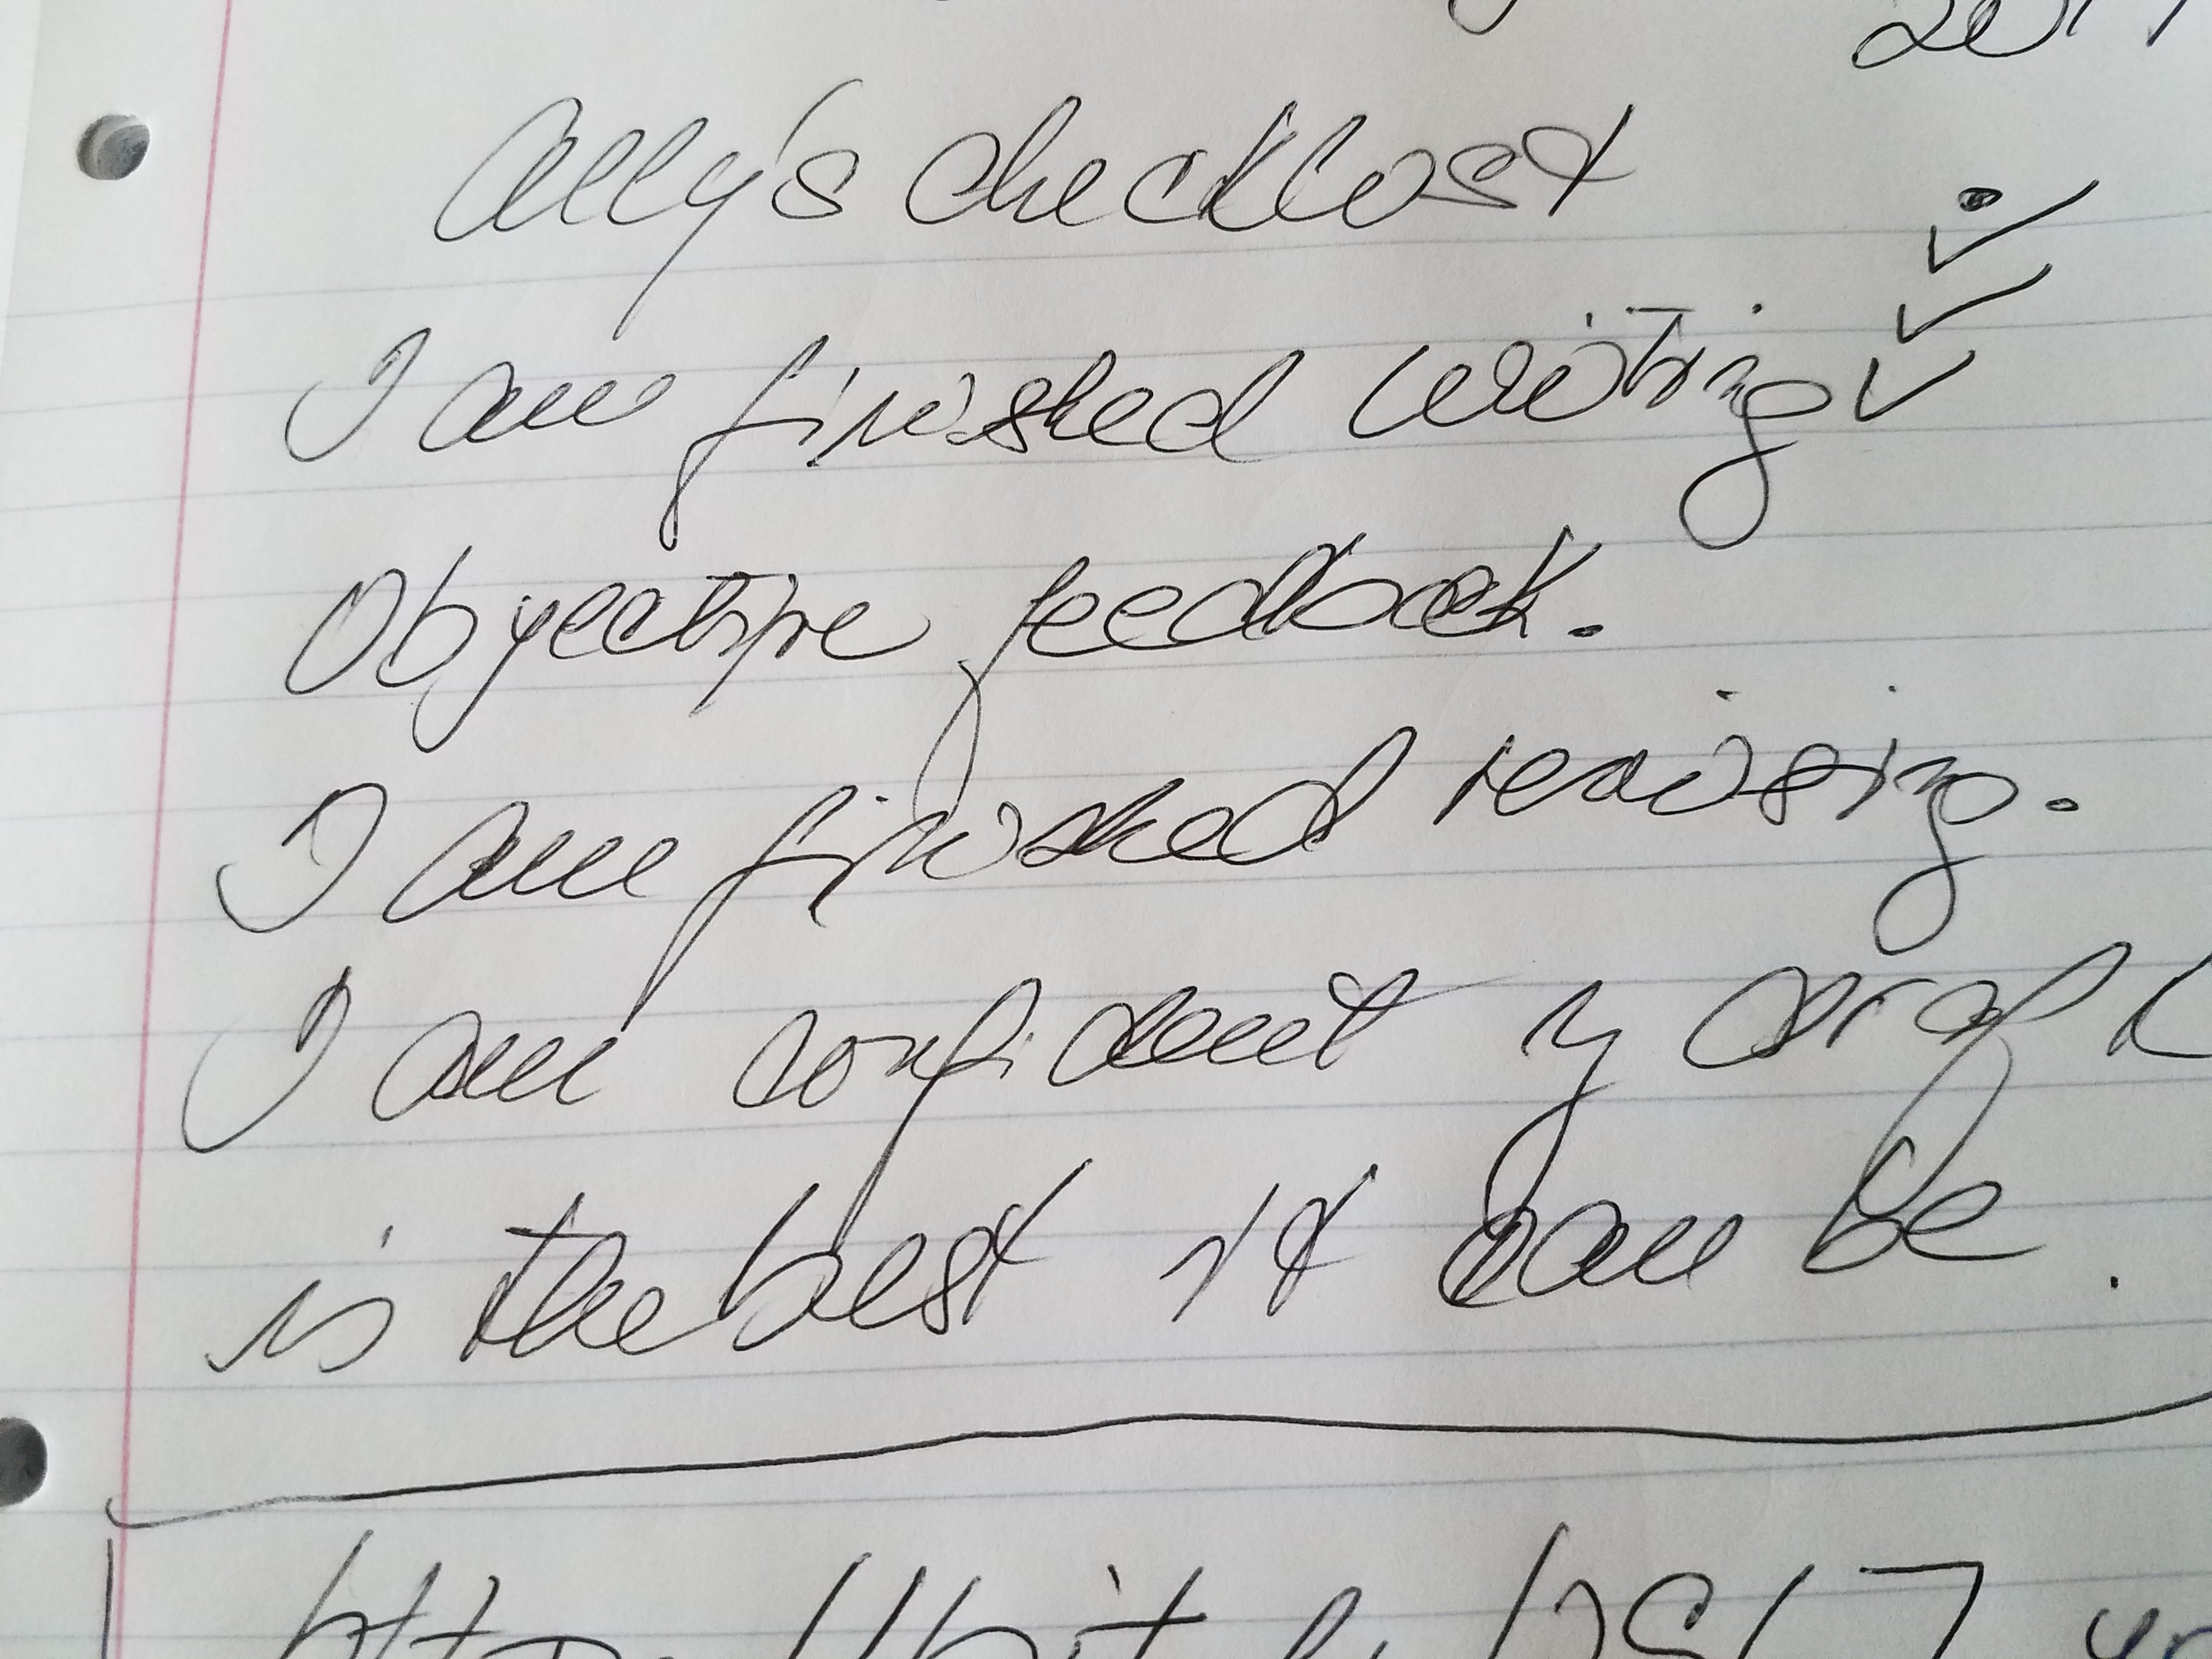 Ally's checklist
I am finished writing
Objective feedback.
I am finished revising.
I am confident my draft
is the best it can be.